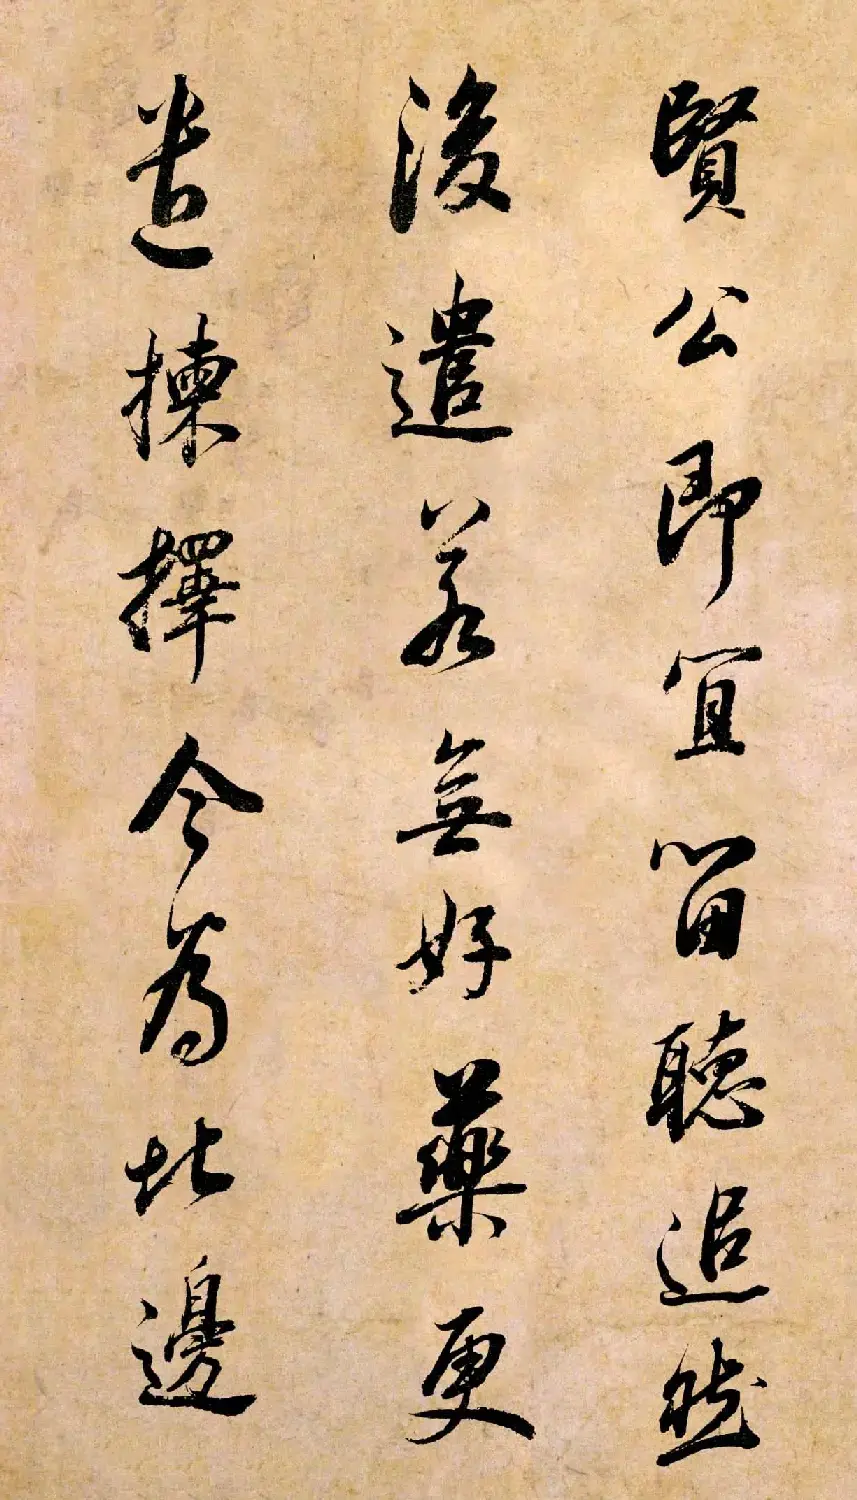 賢公即宜留聽追然
後遣若無好藥更
揀擇今為北邊